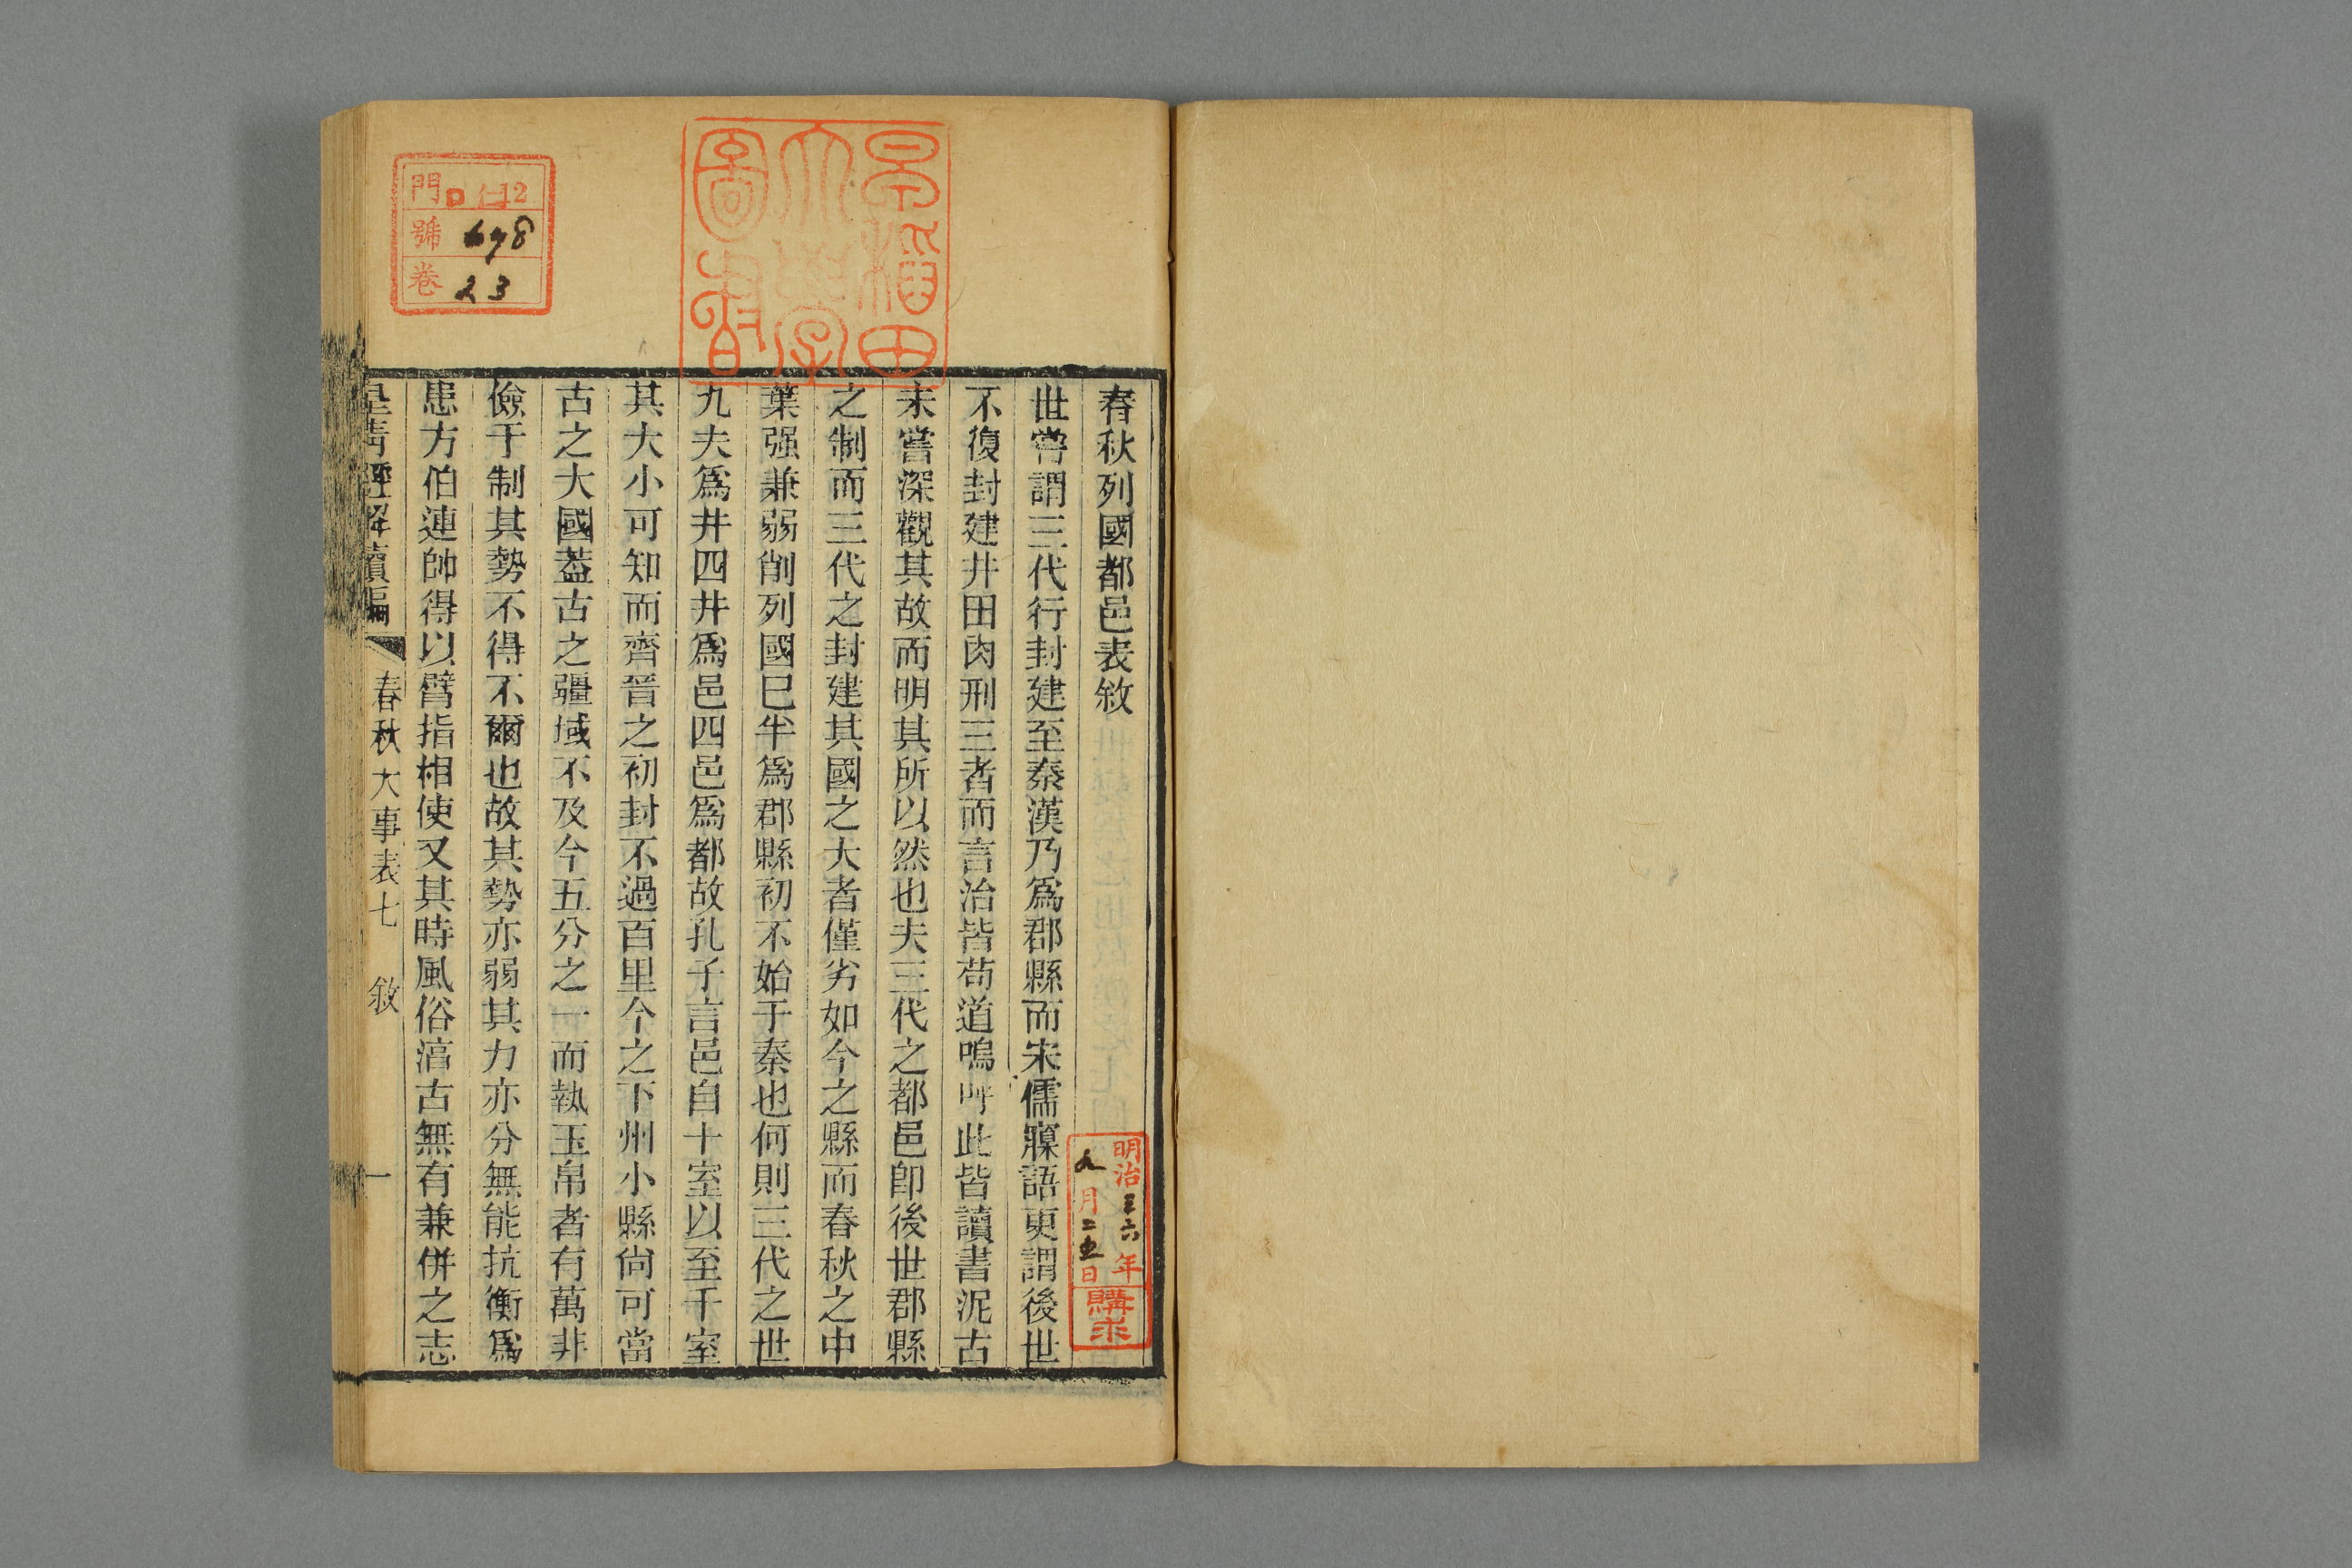 春秋列國都邑表敘
世嘗謂三代行封建至秦漢乃為郡縣而宋儒寱語更謂後世
不復封建井田肉刑三者而言治皆苟道嗚呼此皆讀書泥古
未嘗深觀其故而明其所以然也夫三代之都邑卽後世郡縣
之制而三代之封建其國之大者僅劣如今之縣而春秋之中
葉强兼弱削列國巳半爲郡縣初不始于秦也何則三代之世
九夫爲井四井爲邑四邑爲都故孔子言邑自十室以至千室
其大小可知而齊晉之初封不過百里今之下州小縣尙可當
古之大國葢古之疆域不及今五分之一而執玉帛者有萬非
儉于制其勢不得不爾也故其勢亦弱其力亦分無能抗衡爲
患方伯連帥得以臂指相使又其時風俗湻古無有兼併之志
皇清經解續編 春秋大事表七 敘 一
早稻田
大學
圖書
門 ロ 12
號 698
卷 23
明治三六年
九月二五日
購求